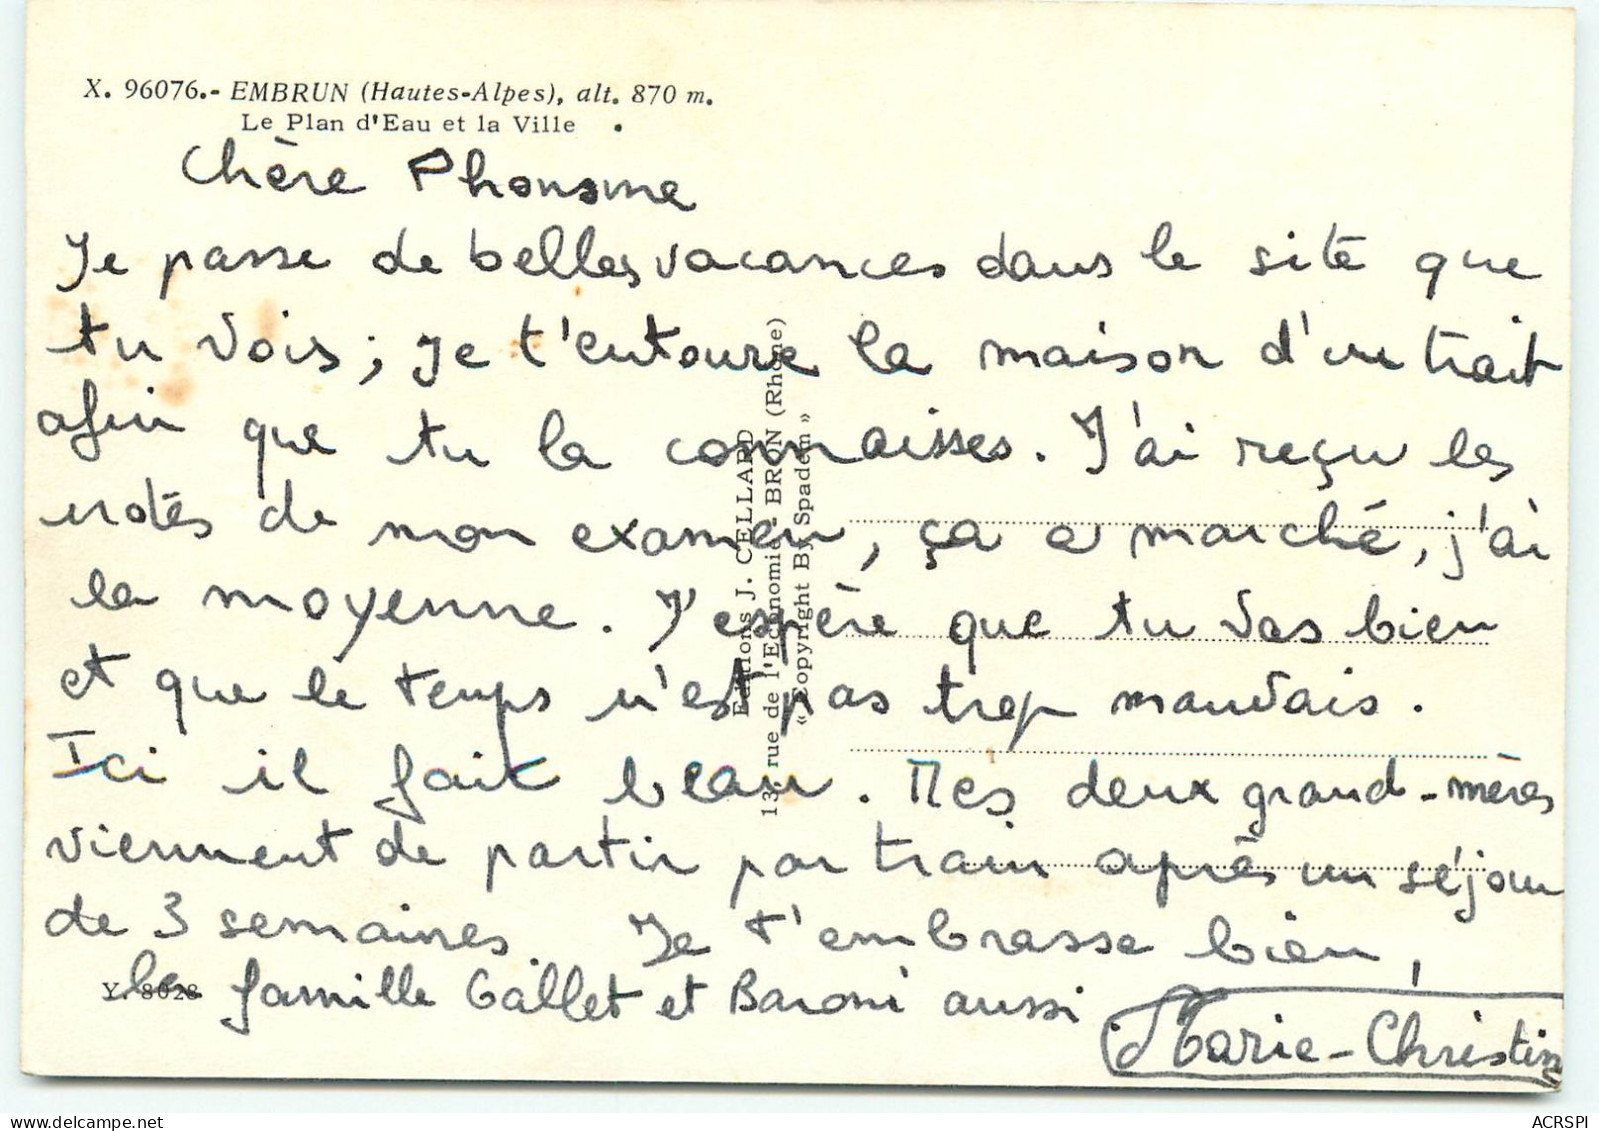 X. 96076.- EMBRUN (Hautes-Alpes), alt. 870 m.
Le Plan d'Eau et la Ville
Chère Phonsine
Je passe de belles vacances dans le site que
tu vois ; je t'entoure la maison d'un trait
afin que tu la connaisses. J'ai reçu les
notes de mon examen, ça a marché, j'ai
la moyenne. J'espère que tu vas bien
et que le temps n'est pas trop mauvais.
Ici il fait beau. Mes deux grand-mères
viennent de partir par train après un séjour
de 3 semaines. Je t'embrasse bien,
la famille Gallet et Baroni aussi
Marie-Christine
Y. 8028
Editions J. CELLARD
13, rue de l'Economie - BRON (Rhône)
« Copyright By Spadem »
ACRSPI